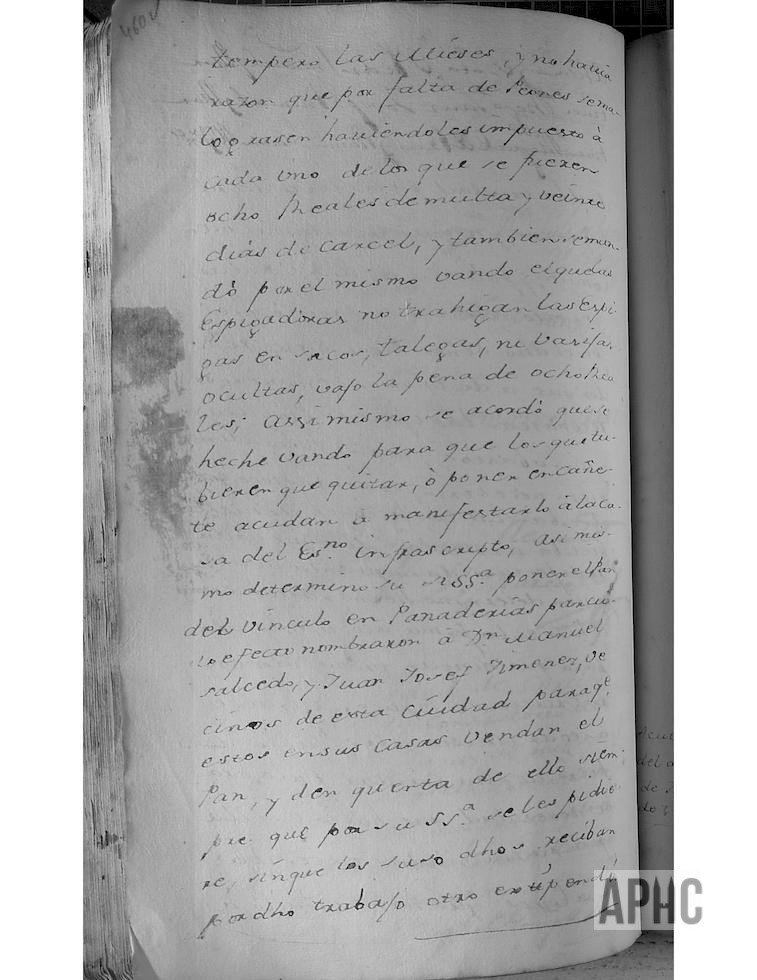 460v
tempero las Mieses, y no havia
razon que por falta de Peones se ma-
lograsen haviendoles impuesto à
cada uno de los que se fueren
ocho Reales de multa y veinte
dias de carcel, y tambien se man-
dò por el mismo vando el que las
Espigadoras no trahigan las espi-
gas en sacos, talegas, ni varijas
ocultas, vajo la pena de ocho Rea
les; Assimismo se acordò que se
heche vando para que los que tu-
bieren que quitar, ò poner en cañe-
te acudan a manifestarlo à la ca-
sa del Es.no infrascripto, asi mis-
mo determino su SSS.a poner el Pan
del vinculo en Panaderias para cu-
io efecto nombraron à Dn Manuel
salcedo, y Juan Josef Jimenez, ve
cinos de esta Ciudad para q.e
estos en sus Casas vendan el
Pan, y den quenta de ello siem-
pre que por su SS.a se les pidie-
re, sin que los suso dhos reciban
por dho trabajo otro extipendio
APHC